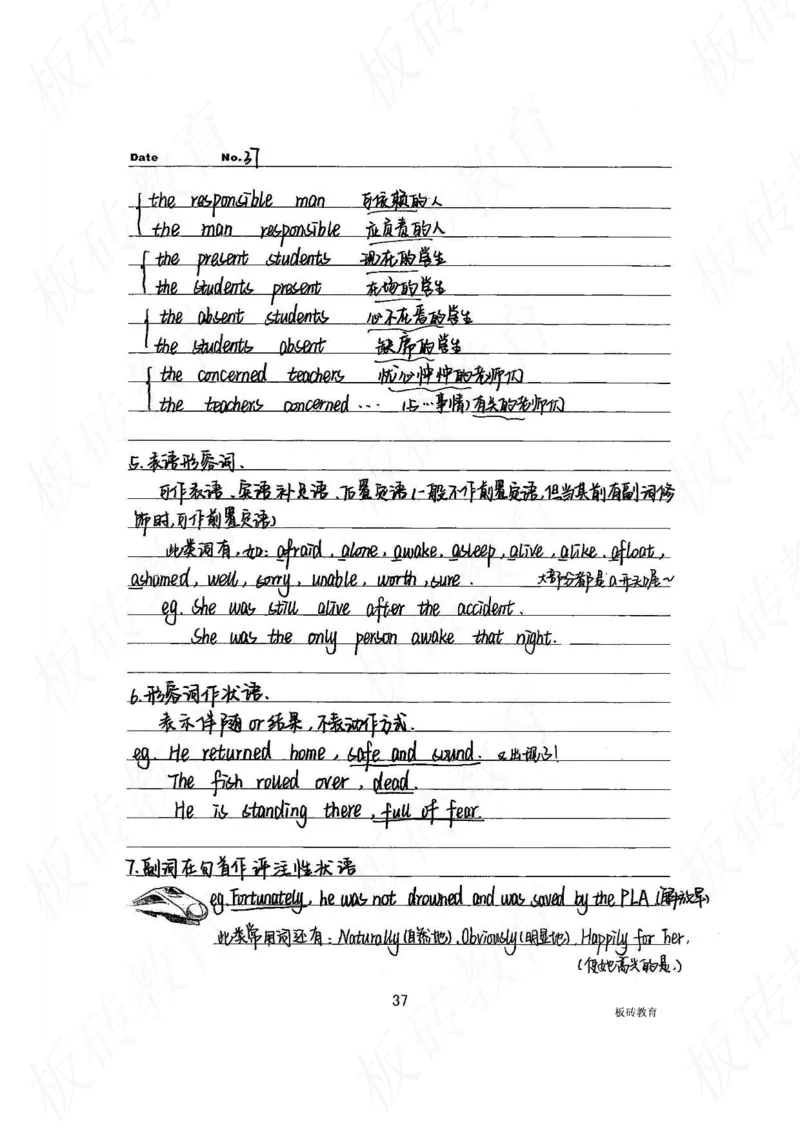 Date No. 37
the responsible man 可依赖的人
the man responsible 应负责的人
the present students 现在的学生
the students present 在场的学生
the absent students 心不在焉的学生
the students absent 缺席的学生
the concerned teachers 忧心忡忡的老师们
the teachers concerned ... (与…事情)有关的老师们
5.表语形容词、
可作表语、宾语补足语、后置定语(一般不作前置定语,但当其前有副词修
饰时,可作前置定语)
此类词有,如: afraid, alone, awake, asleep, alive, alike, afloat,
ashamed, well, sorry, unable, worth, sure. 大部分都是a开头喔~
eg. She was still alive after the accident.
She was the only person awake that night.
6.形容词作状语、
表示伴随or结果,不表动作方式.
eg. He returned home, safe and sound. 又出现了!
The fish rolled over, dead.
He is standing there, full of fear.
7.副词在句首作评注性状语
eg. Fortunately, he was not drowned and was saved by the PLA (解放军)
此类常用词还有: Naturally(自然地), Obviously(明显地), Happily for her,
(使她高兴的是,)
37
板砖教育